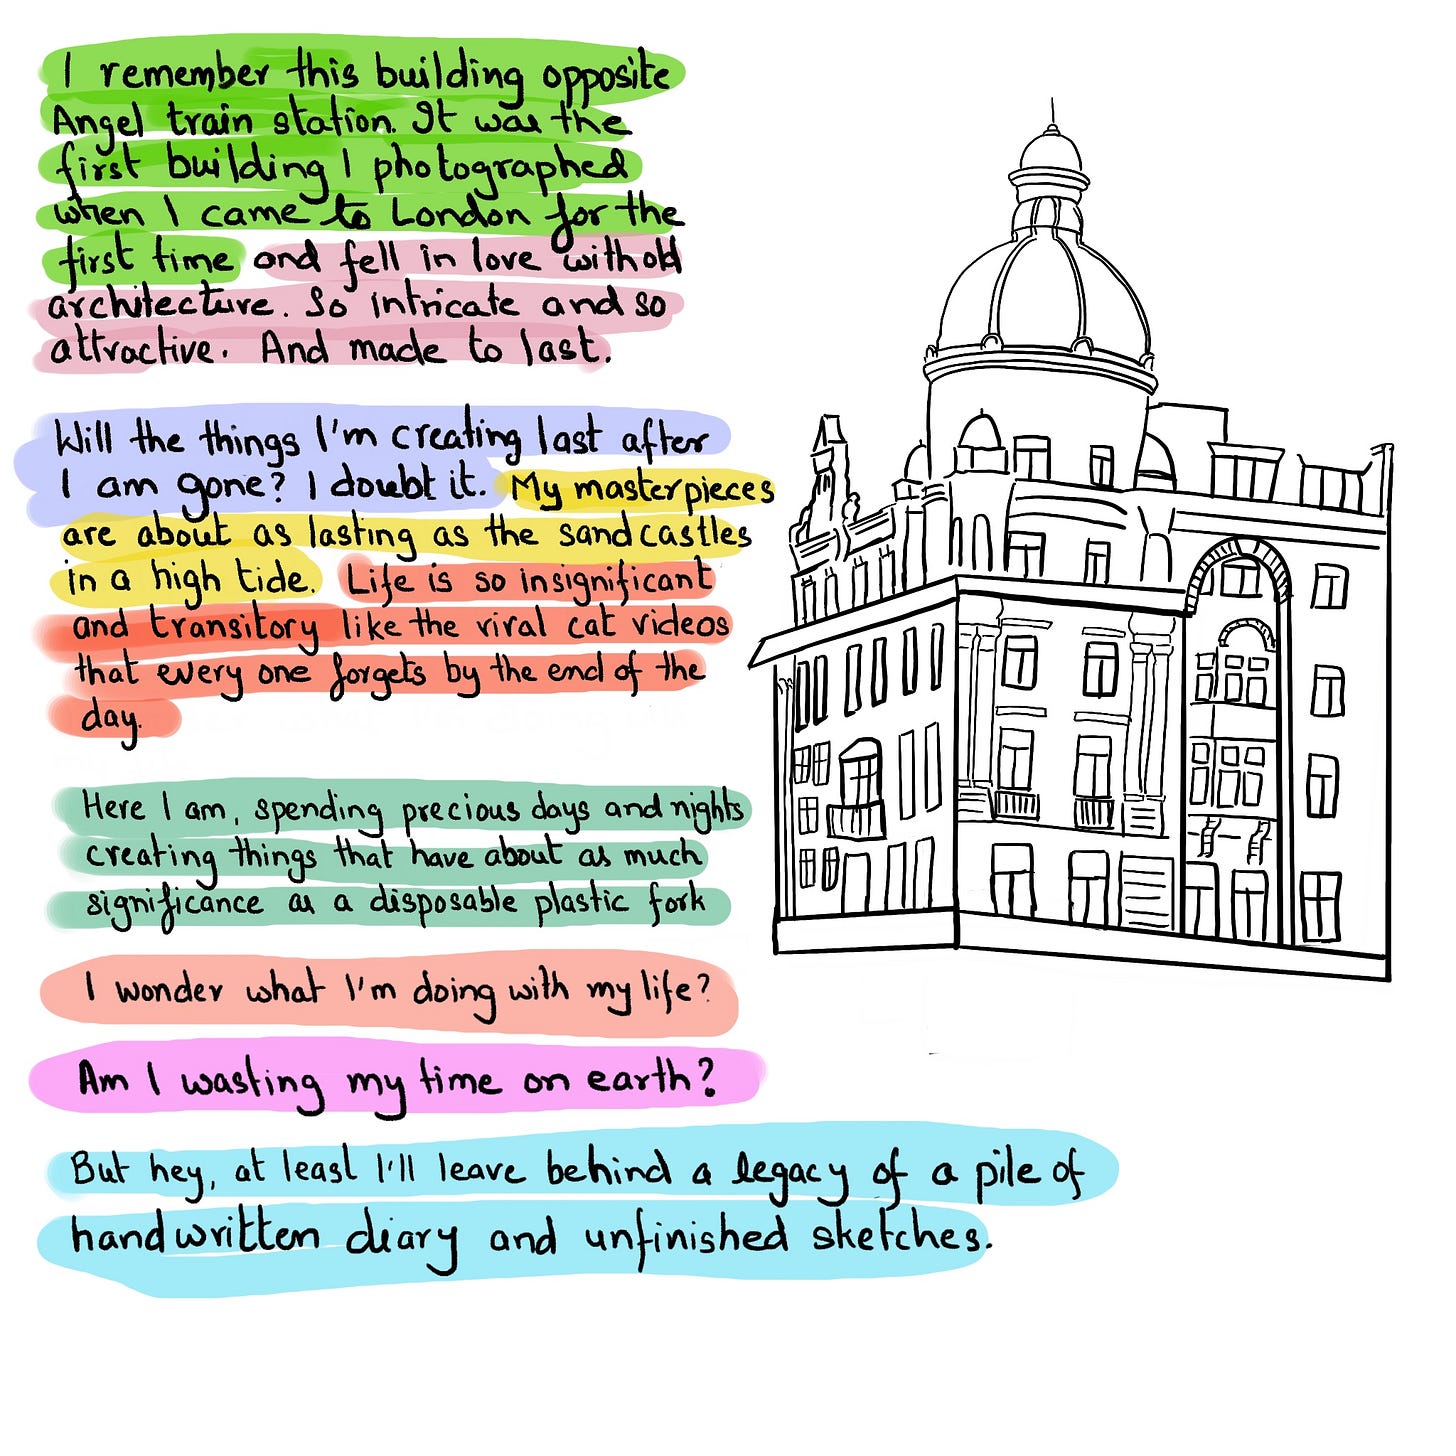 I remember this building opposite
Angel train station. It was the
first building I photographed
when I came to London for the
first time and fell in love with old
architecture. So intricate and so
attractive. And made to last.
Will the things I'm creating last after
I am gone? I doubt it. My masterpieces
are about as lasting as the sandcastles
in a high tide. Life is so insignificant
and transitory like the viral cat videos
that every one forgets by the end of the
day.
Here I am, spending precious days and nights
creating things that have about as much
significance as a disposable plastic fork
I wonder what I'm doing with my life?
Am I wasting my time on earth?
But hey, at least I'll leave behind a legacy of a pile of
handwritten diary and unfinished sketches.